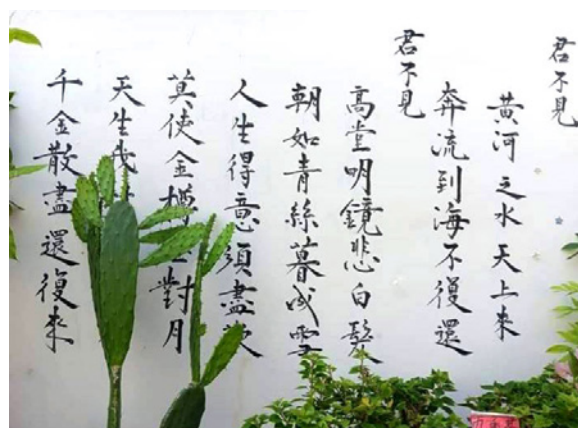 君不見
黃河之水天上來
奔流到海不復還
君不見
高堂明鏡悲白髮
朝如青絲暮成雪
人生得意須盡歡
莫使金樽對月
天生我
千金散盡還復來